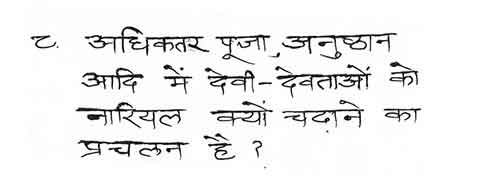 ८. अधिकतर पूजा, अनुष्ठान
आदि में देवी-देवताओं को
नारियल क्यों चढाने का
प्रचलन है ?